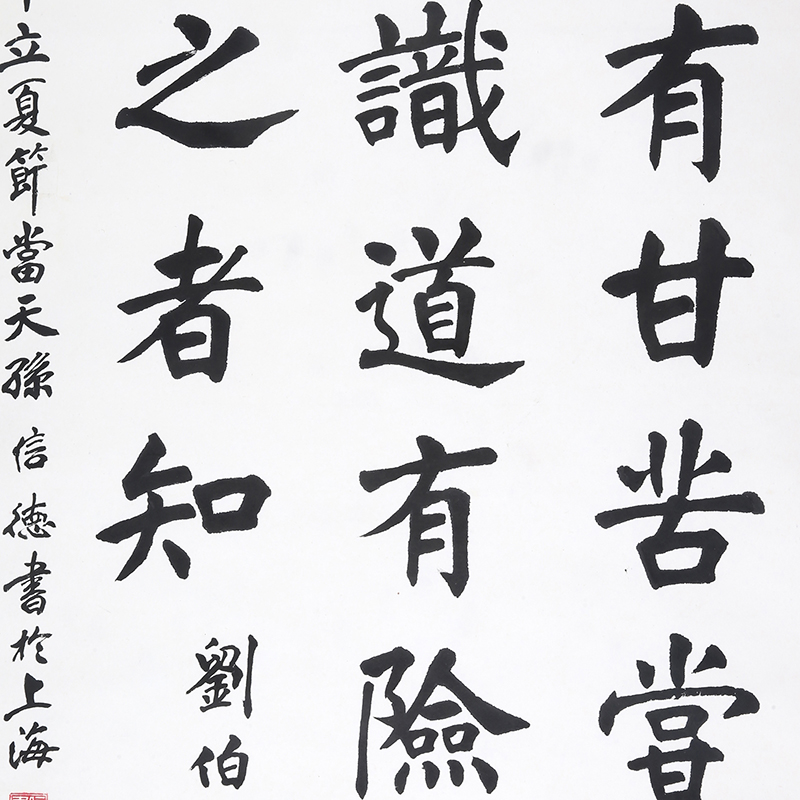 有甘苦嘗
識道有險
之者知
劉伯
立夏節當天孫信德書於上海